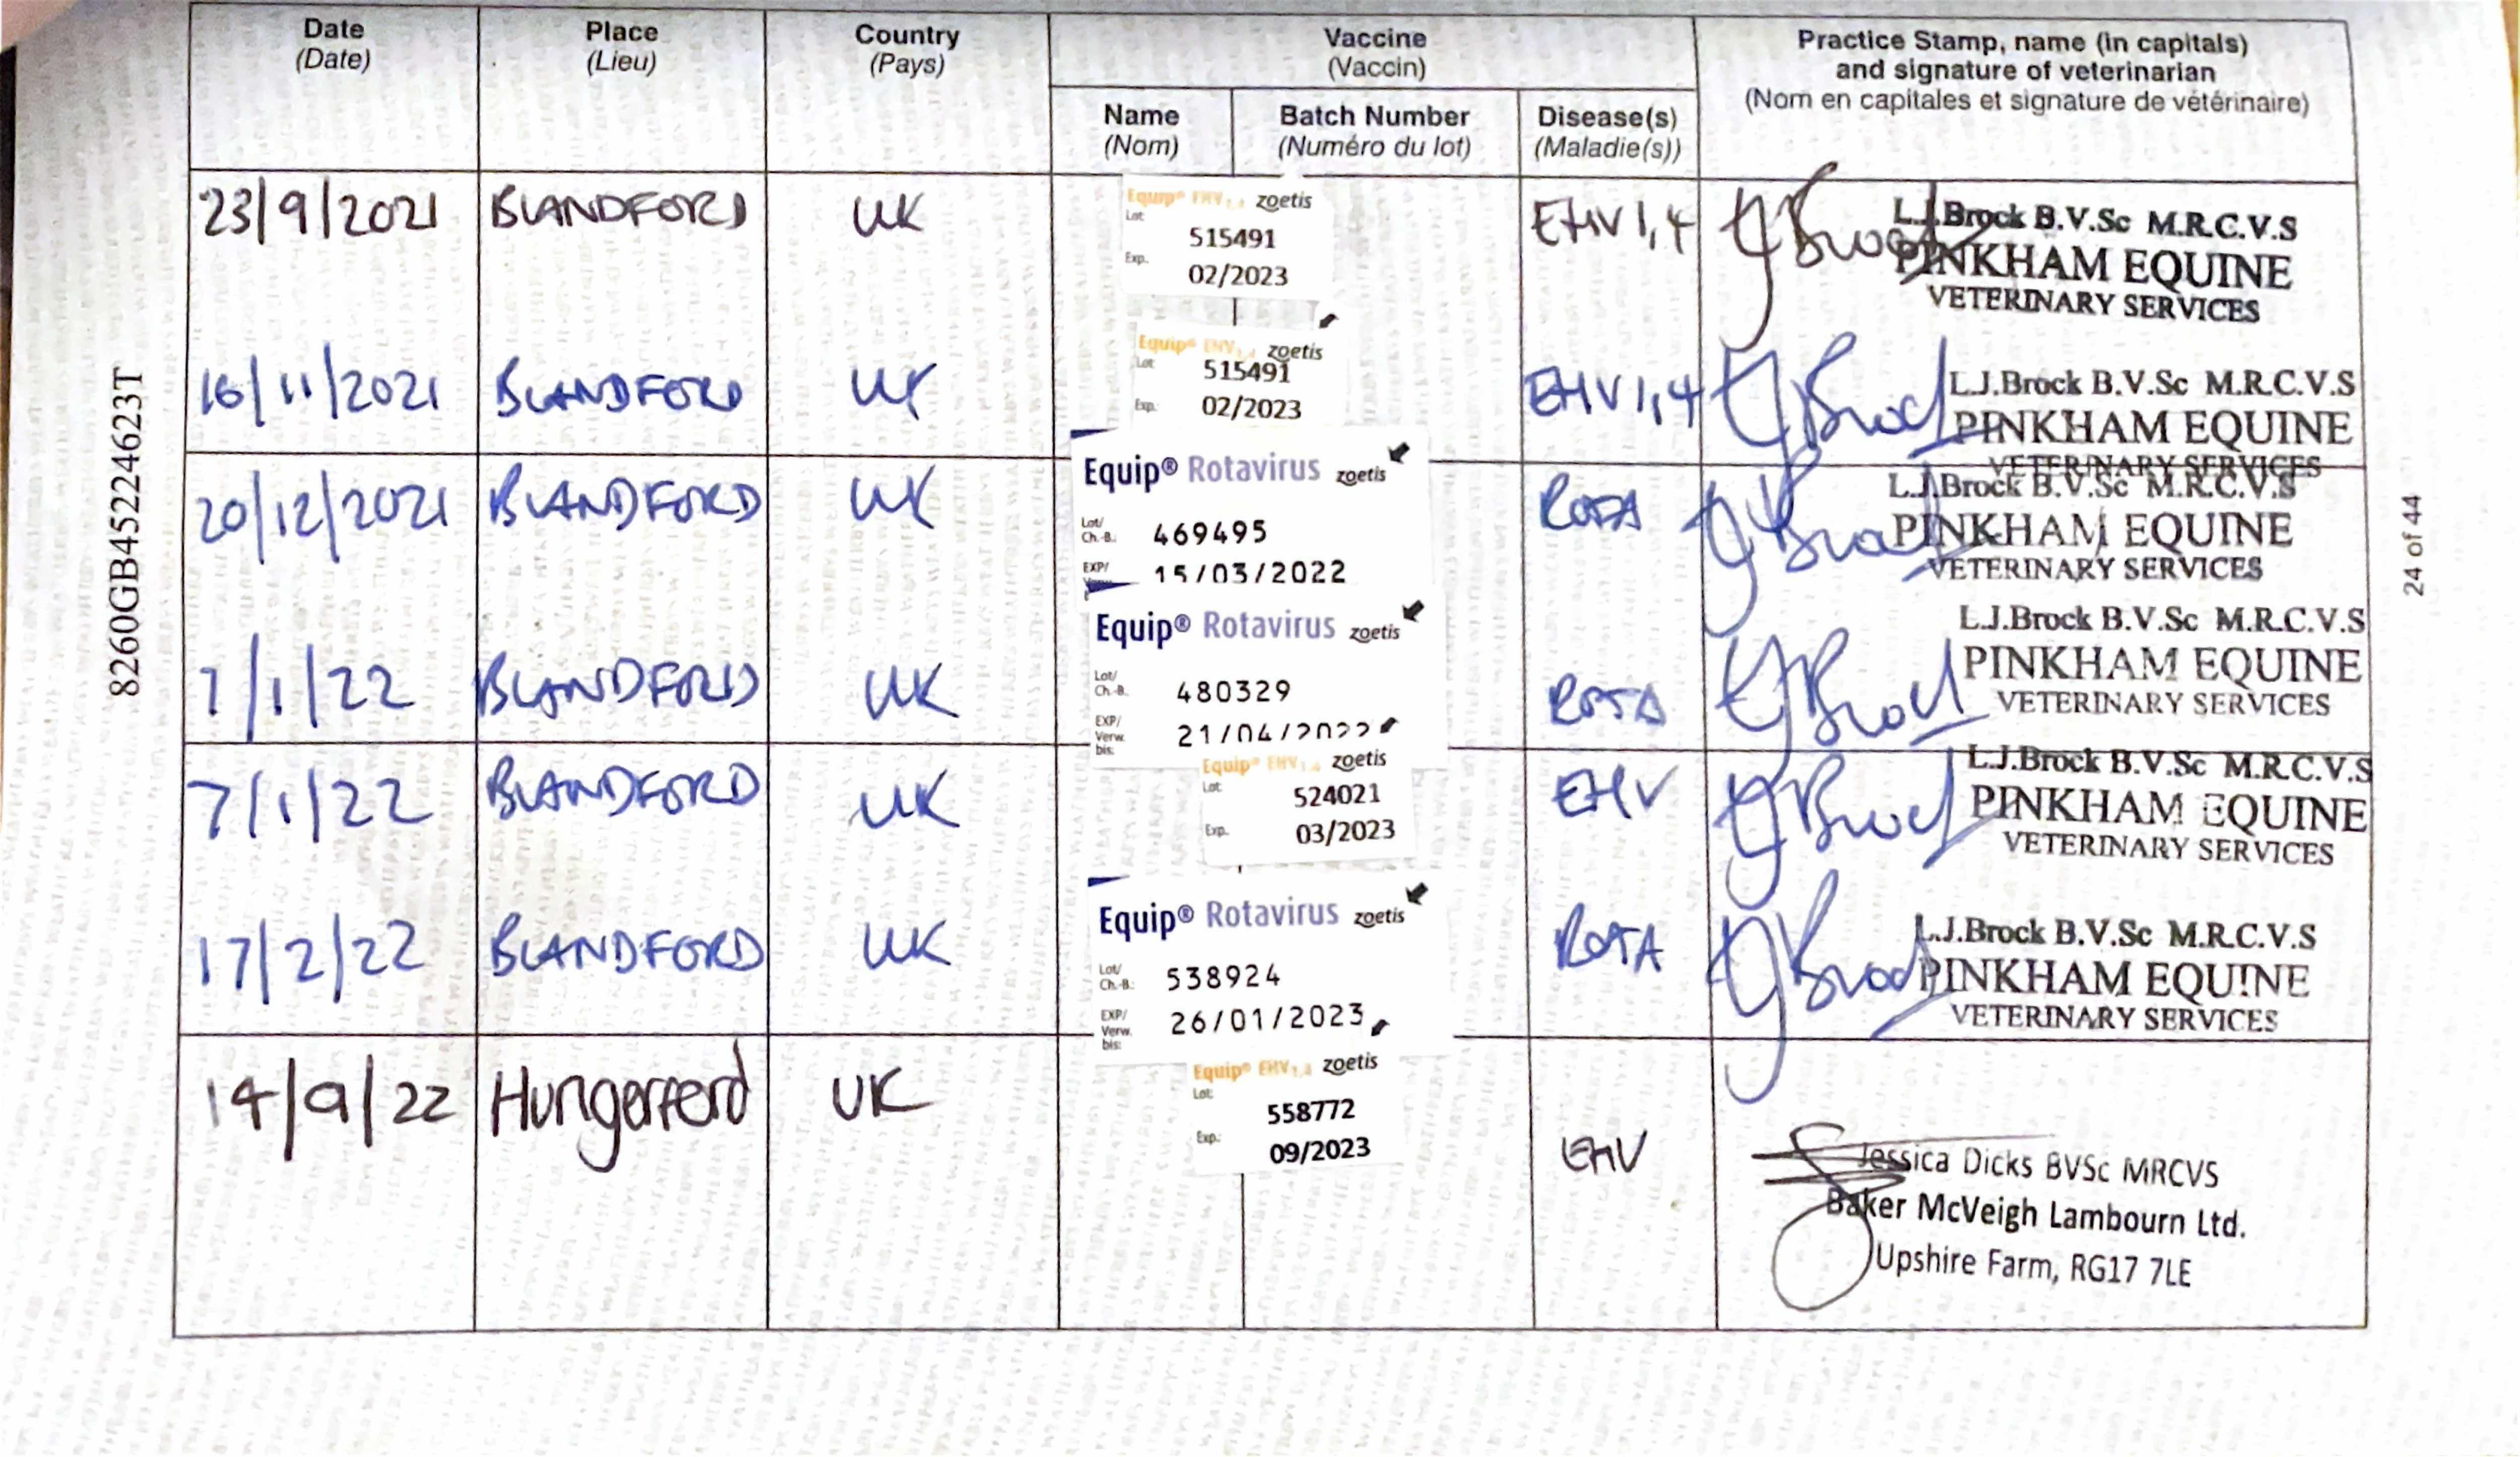 Date
(Date)
Place
(Lieu)
Country
(Pays)
Vaccine
(Vaccin)
Practice Stamp, name (in capitals)
and signature of veterinarian
(Nom en capitales et signature de vétérinaire)
Name
(Nom)
Batch Number
(Numéro du lot)
Disease(s)
(Maladie(s))
23/9/2021 BLANDFORD UK
Equip® EHV1,4 zoetis
Lot
515491
Exp.
02/2023
EHV 1,4
L.J.Brock B.V.Sc M.R.C.V.S
PINKHAM EQUINE
VETERINARY SERVICES
16/11/2021 BLANDFORD UK
Equip® EHV1,4 zoetis
Lot
515491
Exp.
02/2023
EHV 1,4
L.J.Brock B.V.Sc M.R.C.V.S
PINKHAM EQUINE
VETERINARY SERVICES
20/12/2021 BLANDFORD UK
Equip® Rotavirus zoetis
Lot/
Ch.-B.: 469495
EXP/ 15/03/2022
ROTA
L.J.Brock B.V.Sc M.R.C.V.S
PINKHAM EQUINE
VETERINARY SERVICES
7/1/22 BLANDFORD UK
Equip® Rotavirus zoetis
Lot/
Ch.-B. 480329
EXP/
Verw. 21/04/2022
bis:
ROTA
L.J.Brock B.V.Sc M.R.C.V.S
PINKHAM EQUINE
VETERINARY SERVICES
7/1/22 BLANDFORD UK
Equip® EHV1,4 zoetis
Lot:
524021
Exp.
03/2023
EHV
L.J.Brock B.V.Sc M.R.C.V.S
PINKHAM EQUINE
VETERINARY SERVICES
17/2/22 BLANDFORD UK
Equip® Rotavirus zoetis
Lot/
Ch.-B.: 538924
EXP/
Verw. 26/01/2023
bis:
ROTA
L.J.Brock B.V.Sc M.R.C.V.S
PINKHAM EQUINE
VETERINARY SERVICES
14/9/22 Hungerford UK
Equip® EHV1,4 zoetis
Lot:
558772
Exp.:
09/2023
EHV
Jessica Dicks BVSc MRCVS
Baker McVeigh Lambourn Ltd.
Upshire Farm, RG17 7LE
8260GB45224623T
24 of 44